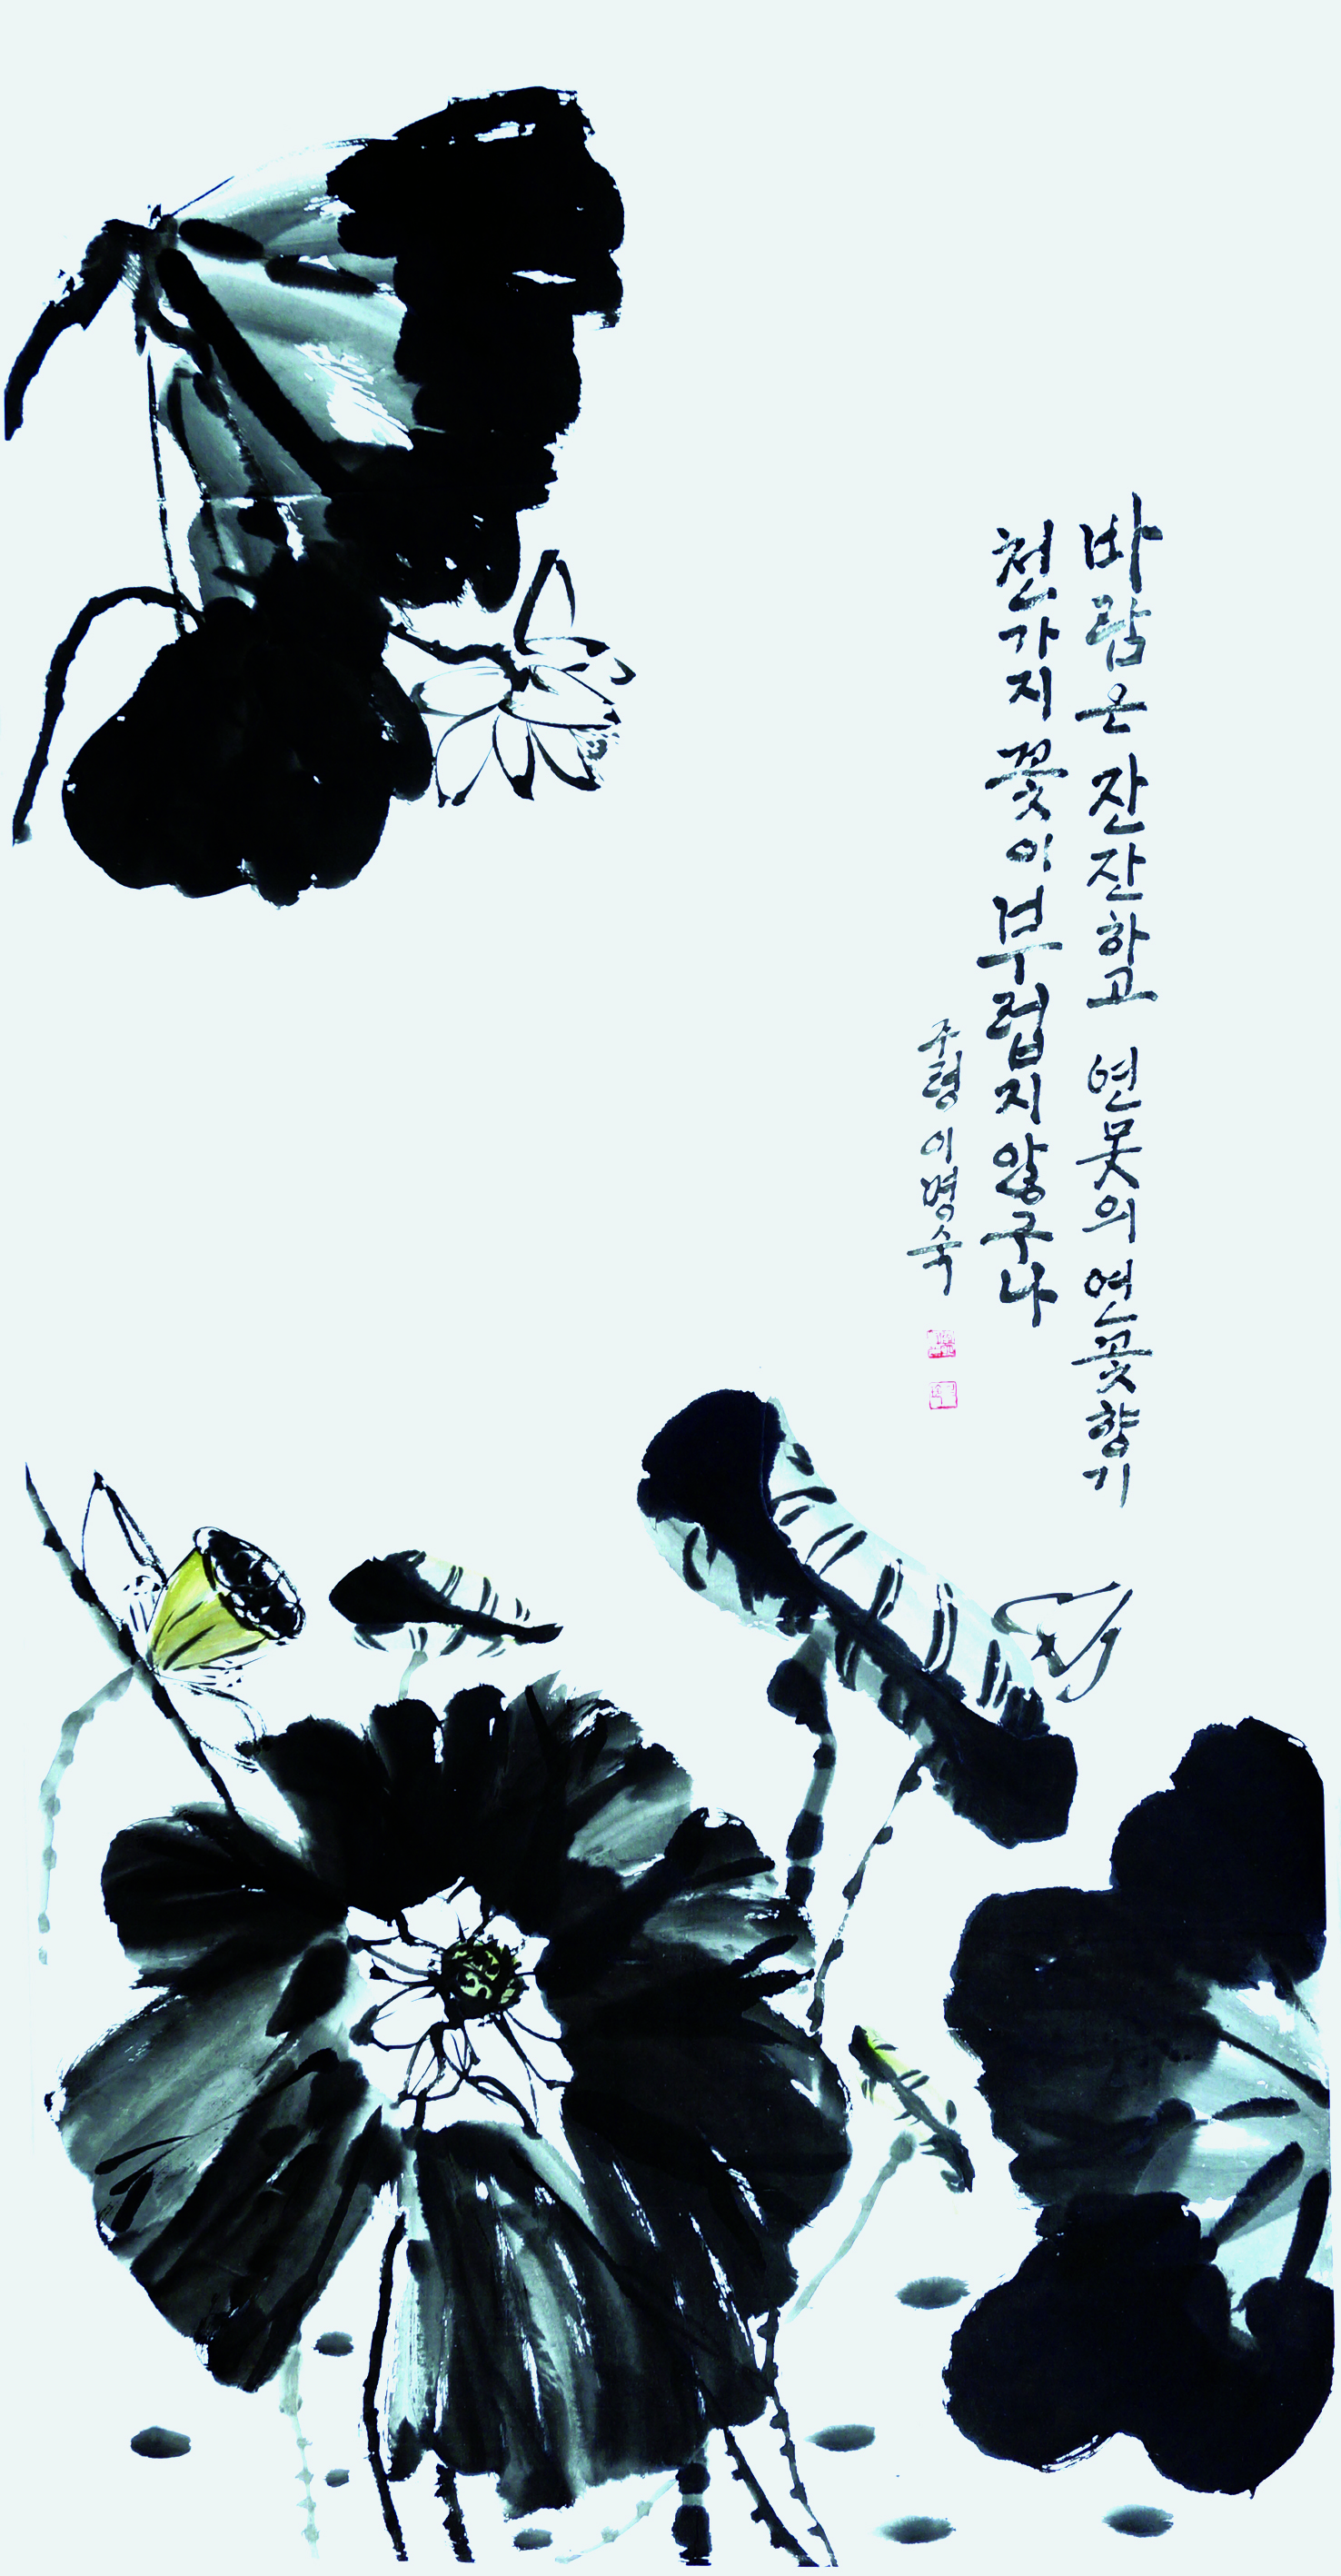 바람은 잔잔하고 연못의 연꽃향기
천가지 꽃이 부럽지 않구나
주령 이명숙